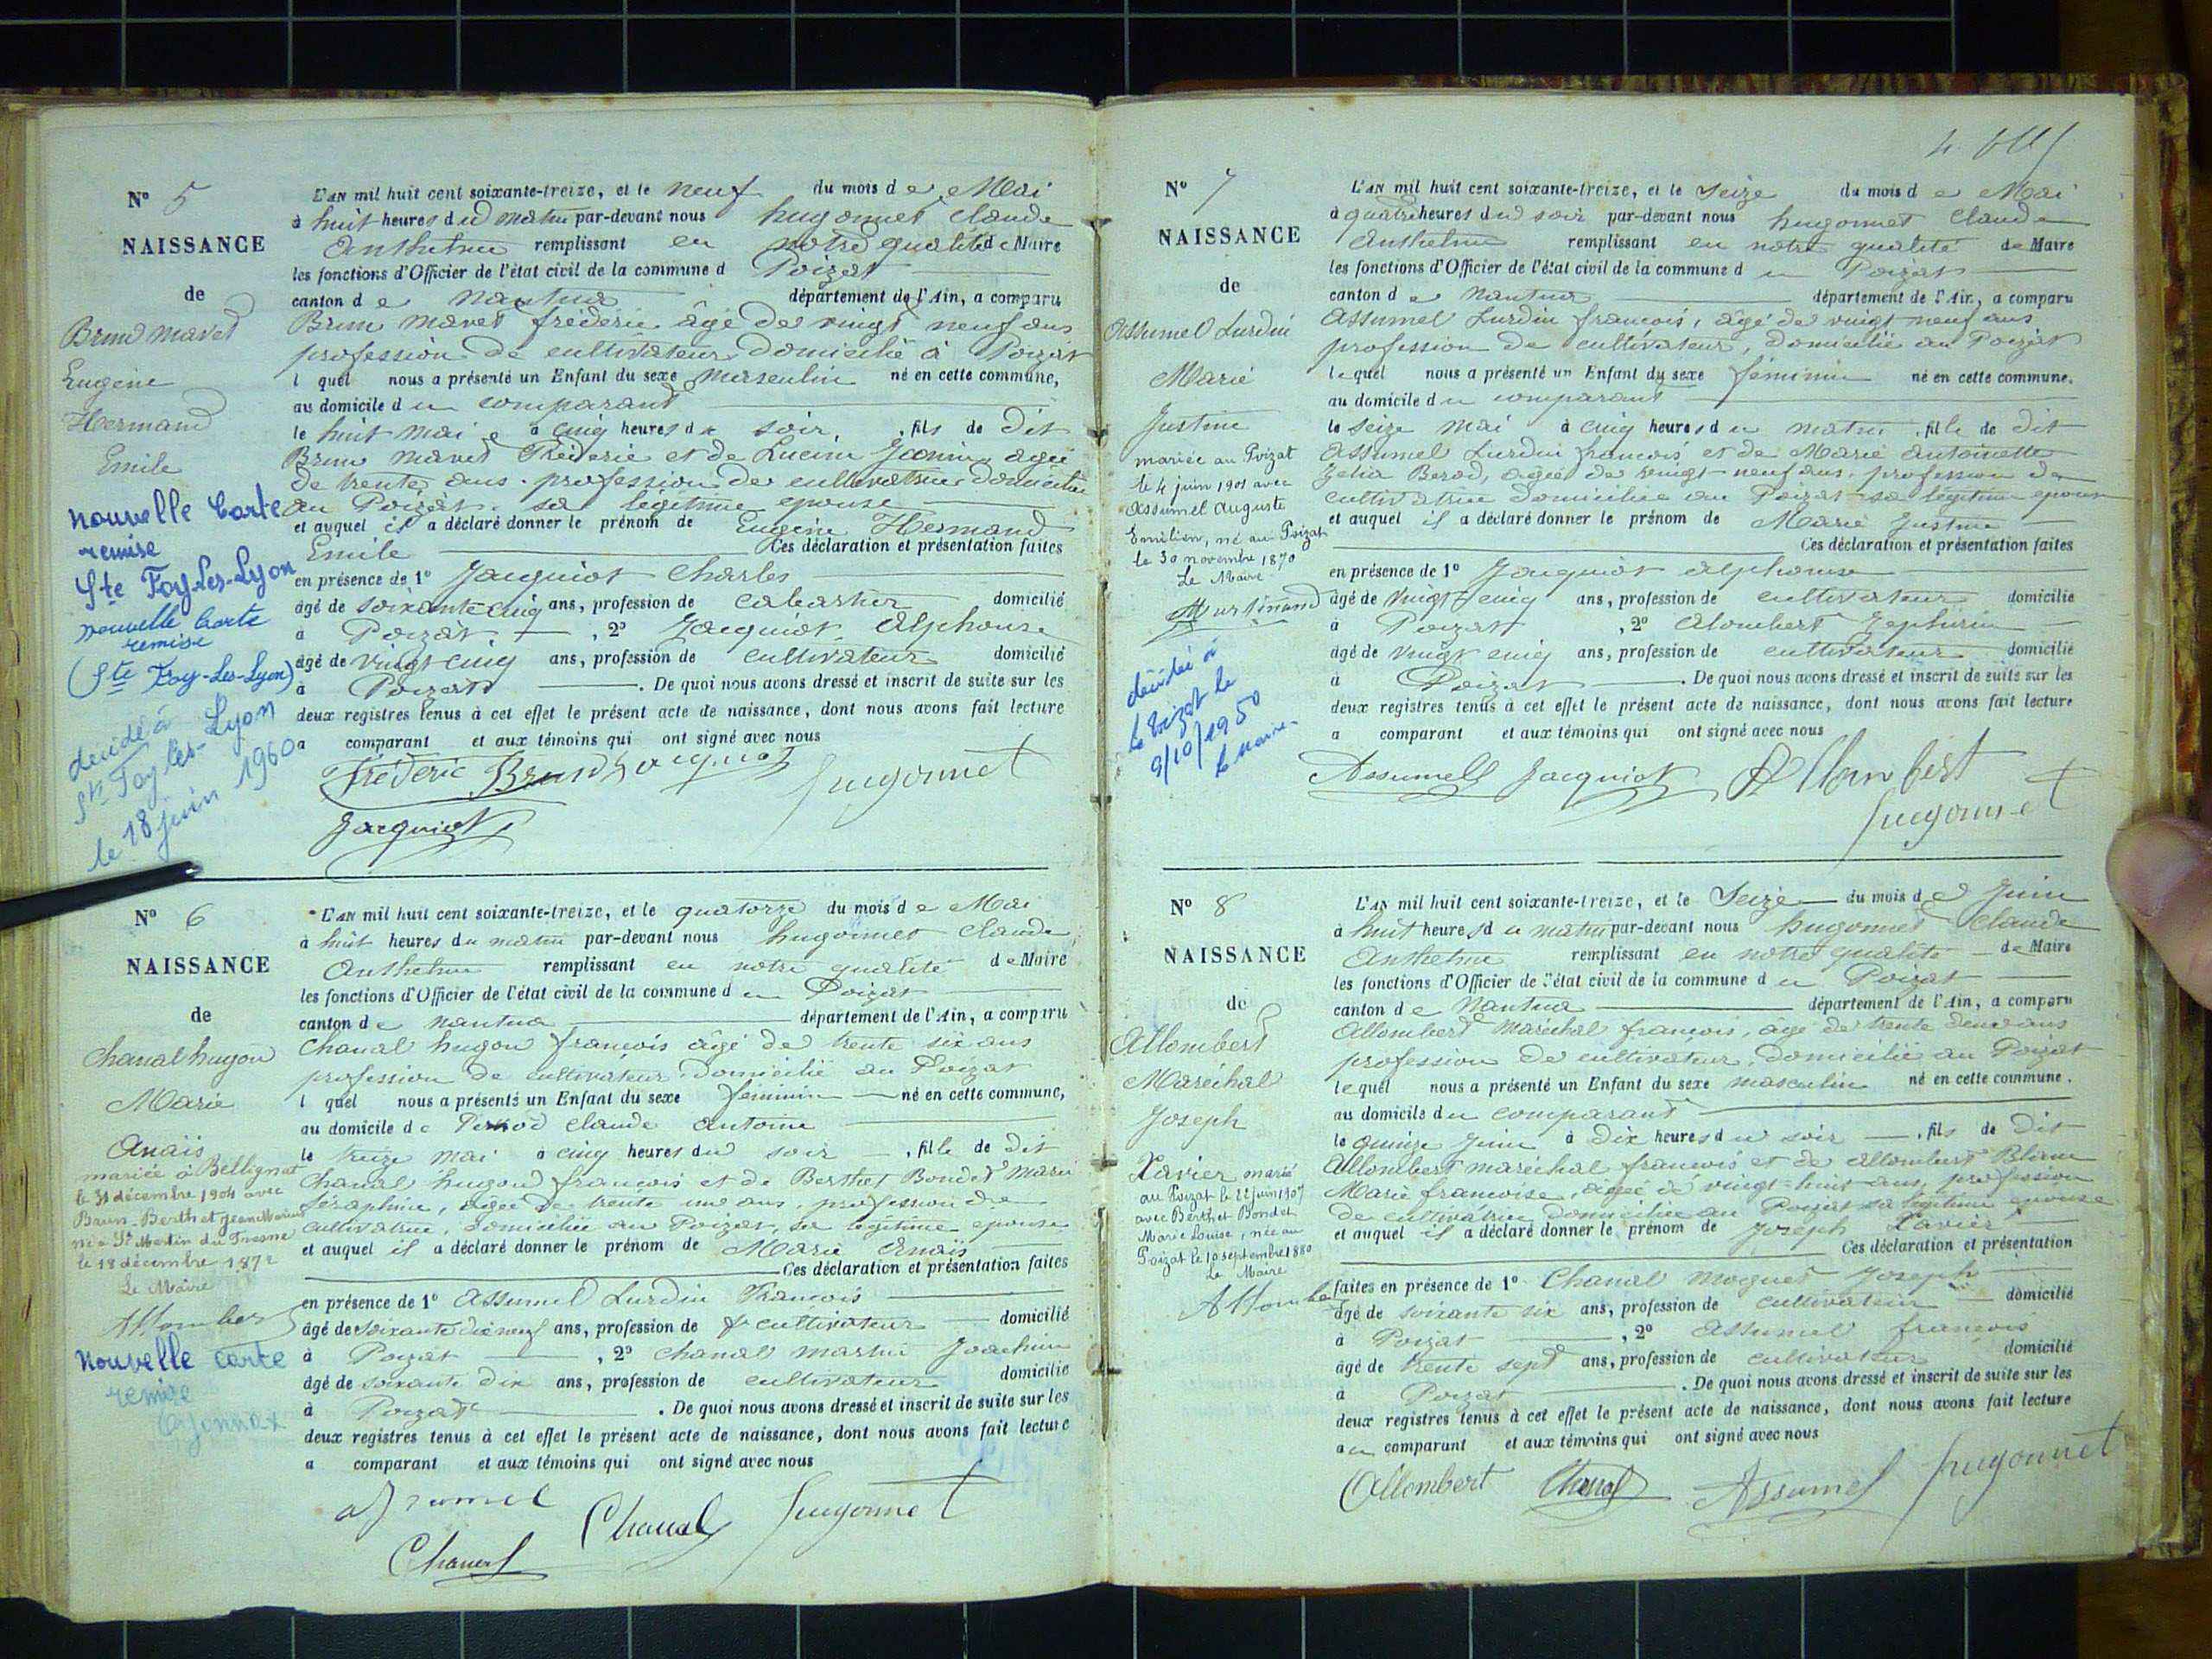 N° 5
NAISSANCE
de
Brun Mavet
Eugène
Hermand
Emile
nouvelle Carte
remise
Ste Foy-Les-Lyon
nouvelle Carte
remise
(Ste Foy-Les-Lyon)
décédé à
Ste Foy les-Lyon
le 18 juin 1960
L'AN mil huit cent soixante-treize, et le neuf du mois de Mai
à huit heures du matin par-devant nous hugonnet Claude
Anthelme remplissant en notre qualité de Maire
les fonctions d'Officier de l'état civil de la commune d Poizat
canton de Nantua département de l'Ain, a comparu
Brun Mavet frédéric âgé de vingt neuf ans
profession de cultivateur domicilié à Poizat
l quel nous a présenté un Enfant du sexe masculin né en cette commune,
au domicile du comparant
le huit mai à cinq heures du soir, fils de dit
Brun Mavet Fréderic et de Lucine Joanin agée
de trente ans. profession de cultivatrice domiciliée
au Poizat. sa légitime epouse
et auquel il a déclaré donner le prénom de Eugène Hermand
Emile Ces déclaration et présentation faites
en présence de 1° Jacquiot Charles
âgé de soixante cinq ans, profession de cabartier domicilié
à Poizat, 2° Jacquiot Alphonse
âgé de vingt-cinq ans, profession de cultivateur domicilié
à Poizat. De quoi nous avons dressé et inscrit de suite sur les
deux registres tenus à cet effet le présent acte de naissance, dont nous avons fait lecture
a comparant et aux témoins qui ont signé avec nous
Fréderic Brun Jacquiot hugonnet
Jacquiot
N° 6
NAISSANCE
de
Chanal hugon
Marie
Anaïs
mariée à Bellignat
le 31 décembre 1904 avec
Brun-Berthet Jean Marius
né à St Martin du Fresne
le 18 décembre 1872
Le Maire
Allomber
nouvelle carte
remise
Oyonnax
L'AN mil huit cent soixante-treize, et le quatorze du mois de Mai
à huit heures du matin par-devant nous hugonnet Claude
Anthelme remplissant en notre qualité de Maire
les fonctions d'Officier de l'état civil de la commune du Poizat
canton de Nantua département de l'Ain, a comparu
Chanal hugon françois âgé de trente six ans
profession de cultivateur domicilié au Poizat
l quel nous a présenté un Enfant du sexe féminin né en cette commune,
au domicile de Claude Antoine
le treize mai à cinq heures du soir, fille de dit
Chanal hugon françois et de Berthet Bondet Marie
Séraphine, agée de trente un ans. profession de
cultivatrice, domiciliée au Poizat, sa légitime epouse
et auquel il a déclaré donner le prénom de Marie Anaïs
Ces déclaration et présentation faites
en présence de 1° Assumel Lurdin François
âgé de soixante dix neuf ans, profession de cultivateur domicilié
à Poizat, 2° Chanal Martin Joachim
âgé de soixante dix ans, profession de cultivateur domicilié
à Poizat. De quoi nous avons dressé et inscrit de suite sur les
deux registres tenus à cet effet le présent acte de naissance, dont nous avons fait lecture
a comparant et aux témoins qui ont signé avec nous
assumel Chanal hugonnet
Chanal
N° 7
NAISSANCE
de
Assumel Lurdin
Marie
Justine
mariée au Poizat
le 4 juin 1901 avec
Assumel Auguste
Emilien, né au Poizat
le 30 novembre 1870
Le Maire
décédée à
le Poizat le
9/10/1950
le maire
L'AN mil huit cent soixante-treize, et le seize du mois de Mai
à quatre heures du soir par-devant nous hugonnet Claude
Anthelme remplissant en notre qualité de Maire
les fonctions d'Officier de l'état civil de la commune du Poizat
canton de Nantua département de l'Ain, a comparu
Assumel Lurdin francois, âgé de vingt neuf ans
profession de cultivateur, domicilié au Poizat
lequel nous a présenté un Enfant du sexe féminin né en cette commune.
au domicile du comparant
le seize mai à cinq heures du matin, fille de dit
Assumel Lurdin francois et de Marie antoinette
Zelia Berod, agée de vingt-neuf ans. profession de
cultivatrice domiciliée au Poizat sa légitime epouse
et auquel il a déclaré donner le prénom de Marie Justine
Ces déclaration et présentation faites
en présence de 1° Jacquiot alphonse
âgé de vingt-cinq ans, profession de cultivateur domicilié
à Poizat, 2° Alombert Zephirin
âgé de vingt cinq ans, profession de cultivateur domicilié
à Poizat. De quoi nous avons dressé et inscrit de suite sur les
deux registres tenus à cet effet le présent acte de naissance, dont nous avons fait lecture
a comparant et aux témoins qui ont signé avec nous
Assumel Jacquiot
hugonnet
N° 8
NAISSANCE
de
Allombert
Maréchal
Joseph
Xavier marié
au Poizat le 22 juin 1907
avec Berthet Bondet
Marie Louise, née au
Poizat le 10 septembre 1880
Le Maire
Allombe
L'AN mil huit cent soixante-treize, et le Seize du mois de Juin
à huit heures du matin par-devant nous hugonnet Claude
Anthelme remplissant en notre qualité de Maire
les fonctions d'Officier de l'état civil de la commune du Poizat
canton de Nantua département de l'Ain, a comparu
Allombert Maréchal francois, âgé de trente deux ans
profession de cultivateur, domicilié au Poizat
lequel nous a présenté un Enfant du sexe masculin né en cette commune.
au domicile du comparant
le quinze Juin à dix heures du soir, fils de dit
Allombert maréchal francois et de Allombert Blanc
Marie francoise, agée de vingt-huit ans, profession
de cultivatrice domiciliée au Poizat sa légitime epouse
et auquel il a déclaré donner le prénom de Joseph Xavier
Ces déclaration et présentation
faites en présence de 1° Chanal Moquet Joseph
âgé de soixante six ans, profession de cultivateur domicilié
à Poizat, 2° Assumel francois
âgé de trente sept ans, profession de cultivateur domicilié
à Poizat. De quoi nous avons dressé et inscrit de suite sur les
deux registres tenus à cet effet le présent acte de naissance, dont nous avons fait lecture
au comparant et aux témoins qui ont signé avec nous
Allombert Chanal Assumel hugonnet